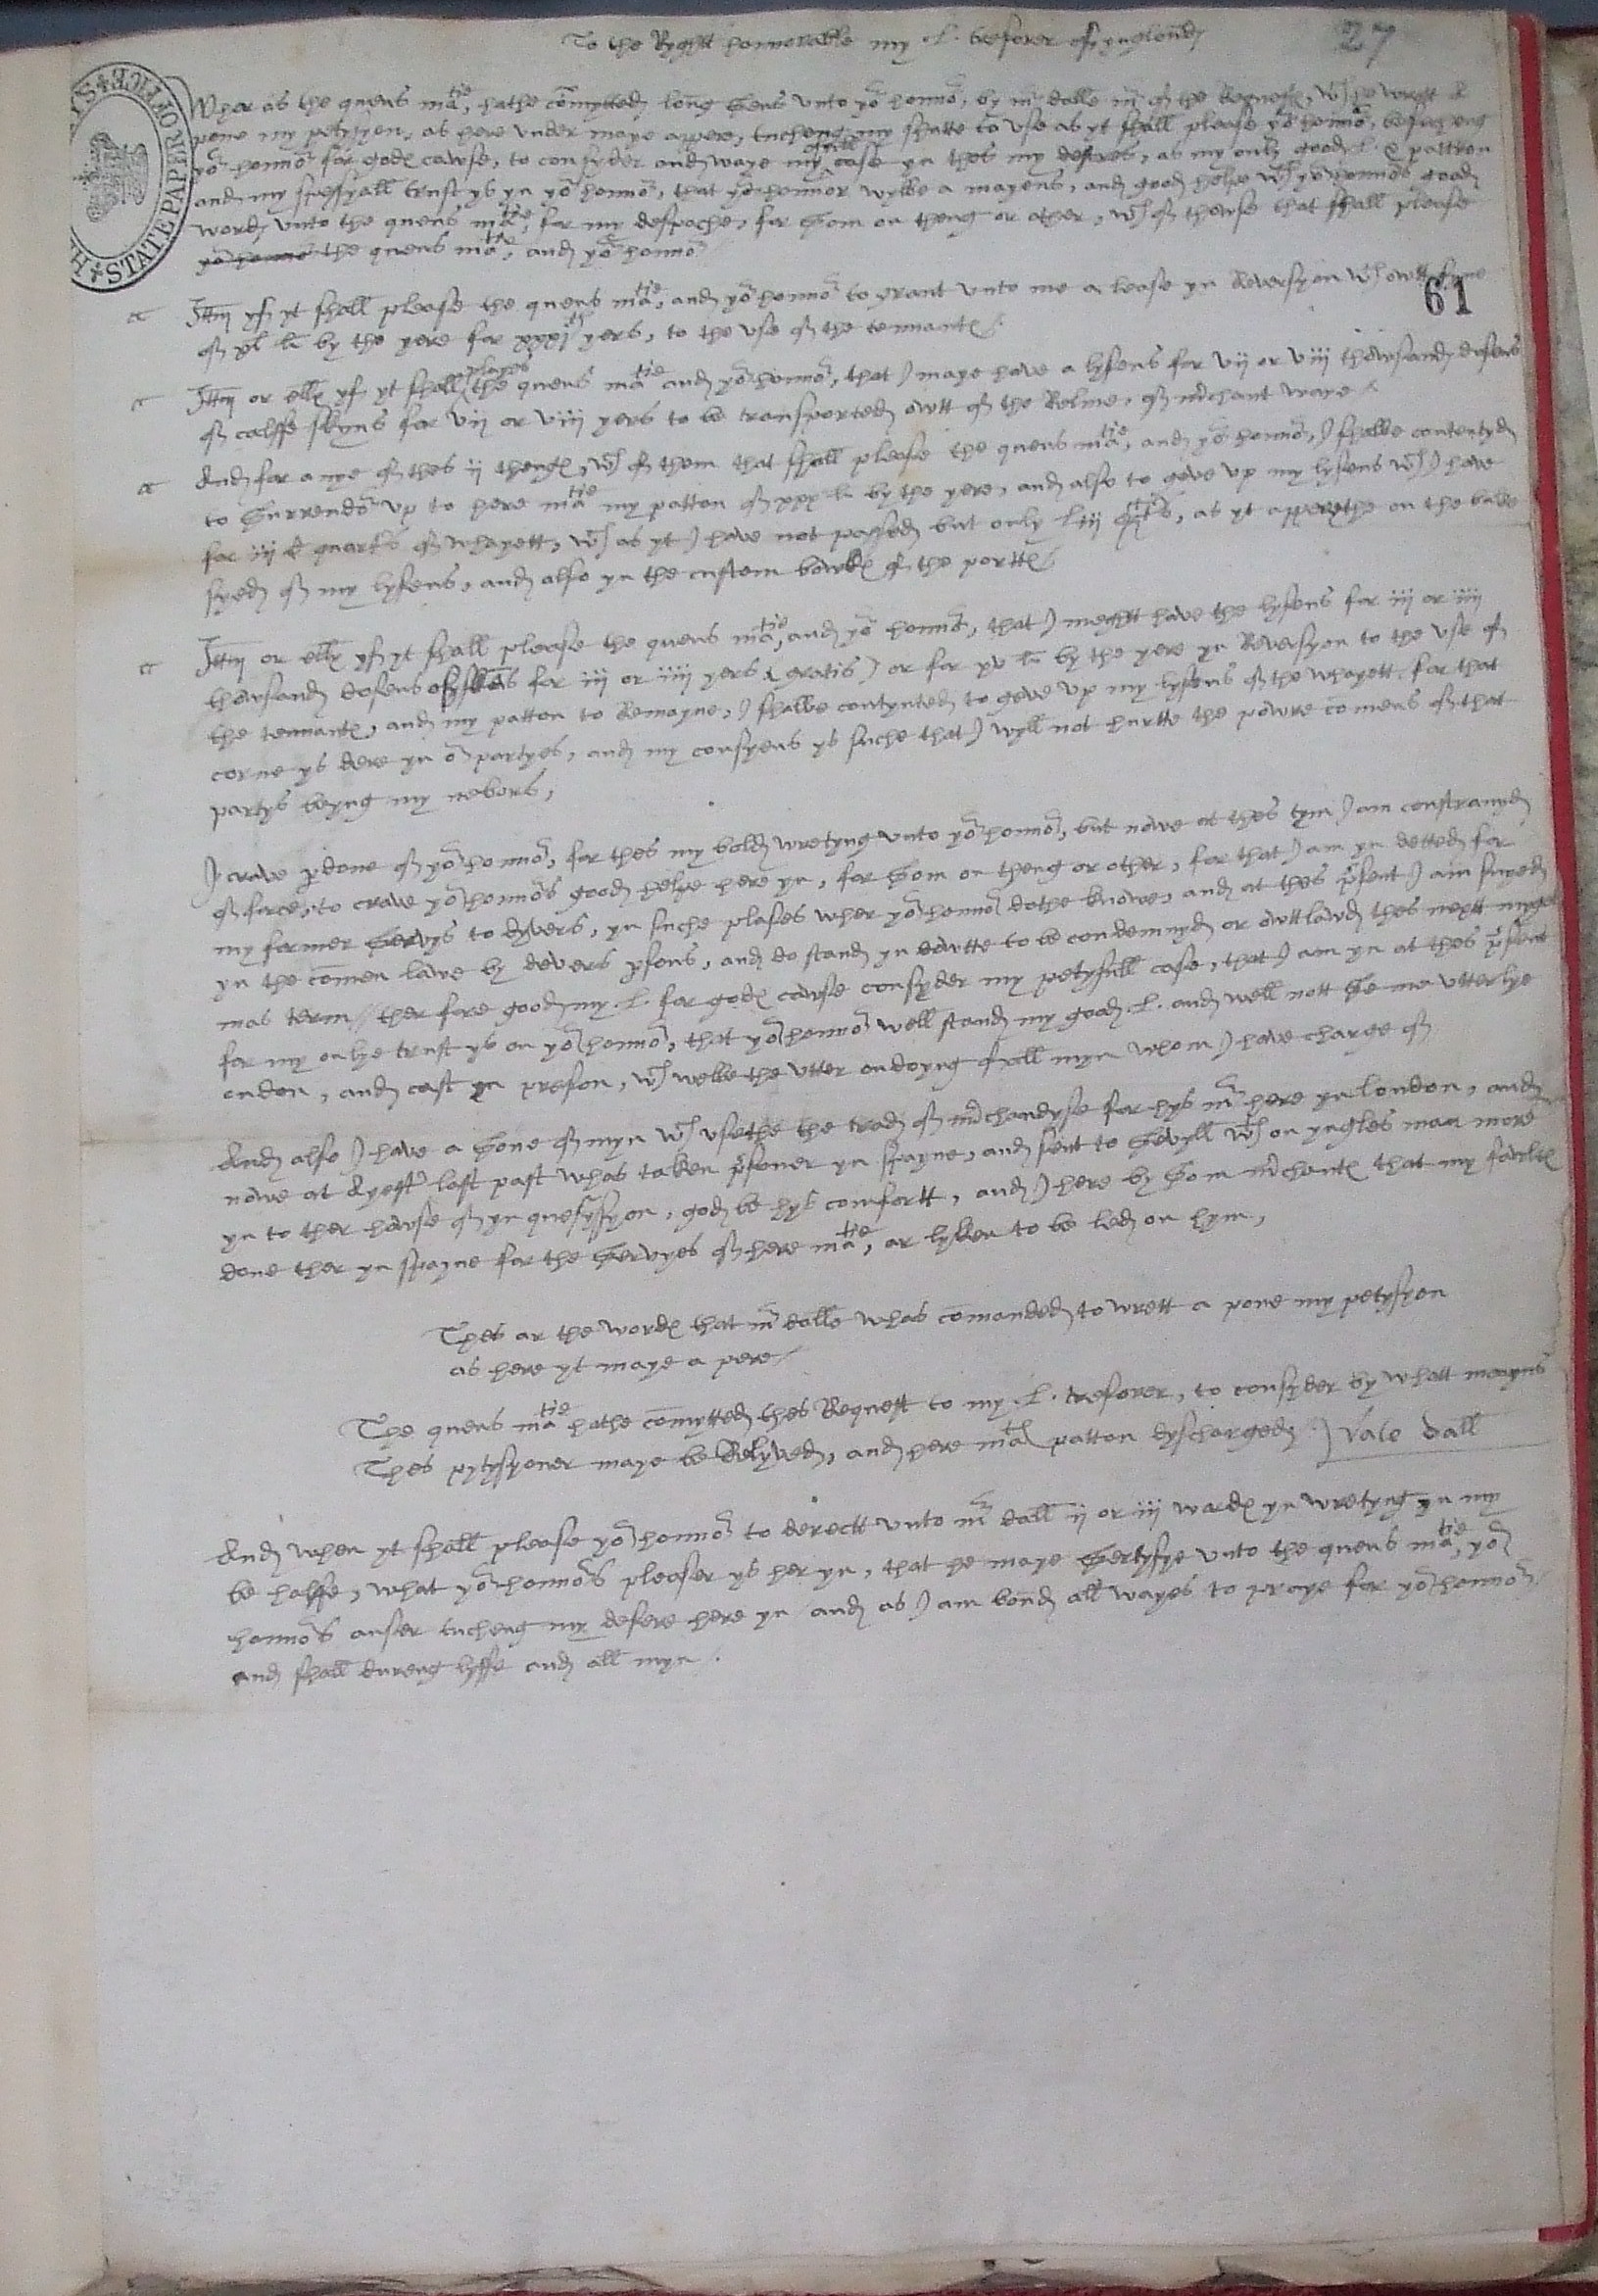 To the Ryghtt honnorable my .L. tresorer off ynglond
27
STATE PAPER OFFICE
Wher as the quens matie, hathe comytted long sens unto yor honnor, by mr dalle mr of the Requests, wch he wrett a
pone my petysyon, as here under maye appere, tucheng my shutte to use as yt shall please yor honnor, besecheng
yor honnor for gods cawse, to consyder and waye my case yn thes my desyres, as my only good L. & pattron
and my spessyall trust ys yn yor honnor, that yor honnor wylbe a mayens, and good helpe wth yor honnors good
word unto the quens matie, for my despache, for som on theng or other, wch of thowse that shall please
yor honnor the quens matie, and yor honnor
61
Ittm yff yt shall please the quens matie, and yor honnor to grant unto me a lease yn Reversyon wth owtt fyne
of xl li by the yere for xxxj th yers, to the use of the tennants
Ittm or ells yf yt shall plays the quens matie and yor honnor, that I maye have a lysens for vij or viij thowsand dosens
of calffe skyns for vij or viij yers to be transported owtt of the Relme, of merchant ware
And for anye of thes ij thengs, wch of them that shall please the quens matie, and yor honnor, I shalbe contentyd
to surrender up to here matie my patten of xxx li by the yere, and also to geve up my lysens wch I have
for iij C quarters of whayett, wch as yt I have not passed but only Lij, as yt apperethe on the bake
syed of my lysens, and also yn the custom bowks of the portts
Ittm or ells yff yt shall please the quens matie, and yor honnor, that I meghtt have the lysens for iij or iiij
thowsand dosens of skens for iij or iiij yers (gratis) or for xv li by the yere yn Reversyon to the use of
the tennants, and my patten to Remayne, I shalbe contynted to geve up my lysens of the whayett, for that
corne ys dere yn or partyes, and my consyens ys suche that I wyll not hurtte the powre comens of that
partys beyng my nebors,
I crave pdone of yor honnor, for thes my bold wretyng unto yor honnor, but nowe at thes tym I am constranyd
of force, to crave yor honnors good helpe here yn, for som on theng or other, for that I am yn detted for
my former servys to dyvers, yn suche plases wher yor honnor dothe knowe, and at thes psent I am suyed
yn the comen lawe by devers psons, and do stand yn dowtte to be condemnyd or owttlawd thes nextt myge
mas term // therfore good my .L. for gods cawse consyder my petyfull case, that I am yn at thes psent
for my onlye trust ys on yor honnor, that yor honnor well stand my good L. and well nott se me utterlye
ondon, and cast yn preson, wch welbe the utter ondoyng of all myn whom I have charge of
And also I have a sone of myn wch usethe the trad of merchandyse for hys mr here yn london, and
nowe at Ayester last past whas taken prsoner yn spayne, and sent to Sevyll wth on yngles man more
yn to ther howse of ynquesysyon, god be hys comfortt, and I here by som merchants that my fawlts
done ther yn spayne for the servyes of here matie, ar lyken to be led on hym,
Thes ar the words that mr dalle whas comanded to wrett a pone my petysyon
as here yt maye a pere
The quens matie hathe comytted thes Request to my .L. tresorer, to consyder by whatt mayns
Thes pytysyoner maye be Relyved, and here matie patten dyscharged. Vale Dall
And when yt shall please yor honnor to derectt unto mr dall ij or iij wards yn wretyng yn my
be halffe, what yor honnors pleaser ys her yn, that he maye sertyfye unto the quens matie, yor
honnors anser tucheng my desere here yn / and as I am bond all wayes to praye for yor honnor
and shall dureng lyffe and all myn.